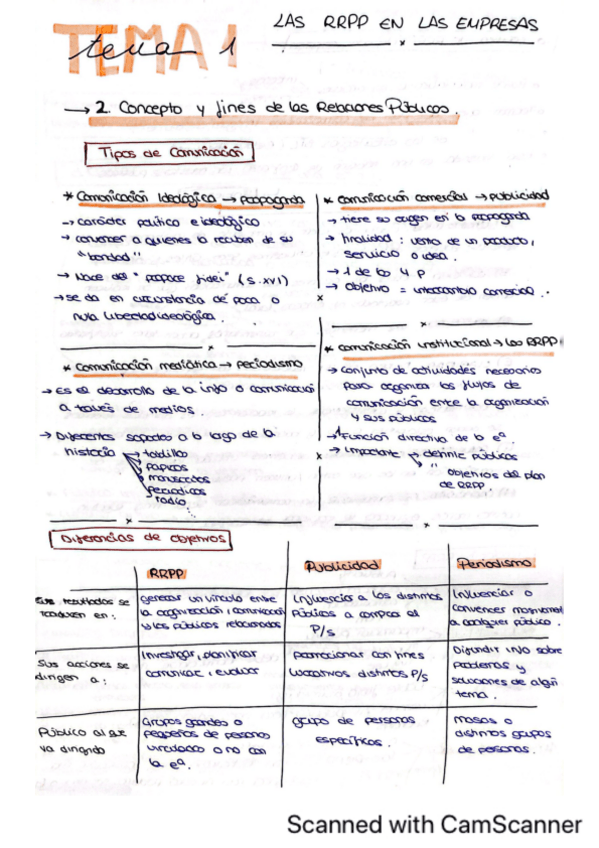 TEMA 1
tema 1
LAS RRPP EN LAS EMPRESAS
→ 2. Concepto y fines de las Relaciones Públicas.
Tipos de Comunicación
* Comunicación Ideológica → Propaganda
→ carácter político e ideológico
→ convencer a quienes la reciben de su
"bondad"
→ Nace del "propace fidei" (s.XVI)
→ se da en circunstancia de poca o
nula libertad ideológica.
* comunicación comercial → publicidad
→ tiene su origen en la propaganda
→ finalidad: venta de un producto,
servicio o idea.
→ 1 de las 4 P
→ Objetivo = intercambio comercial.
* Comunicación mediática → periodismo
→ Es el desarrollo de la info o comunicación
a través de medios.
→ Diferentes soportes a lo largo de la
historia → tablilla
papiros
manuscritos
periodicos
radio
* comunicación institucional → las RRPP
→ Conjunto de actividades necesarias
para organizar los flujos de
comunicación entre la organización
y sus públicos
→ Función directiva de la eª.
→ importante → definir públicos
" objetivos del plan
de RRPP
Diferencias de objetivos
RRPP
Publicidad
Periodismo
Sus resultados se
traducen en:
generar un vínculo entre
la organización, comunicación
y los públicos relacionados
Influenciar a los distintos
Públicos a comprar el
P/s
Influenciar o
convencer
a cualquier público.
Sus acciones se
dirigen a:
Investigar, planificar
comunicar, evaluar
promocionar con fines
lucrativos distintos P/s
Difundir info sobre
problemas y
soluciones de algún
tema.
Público al que
va dirigido
Grupos grandes o
pequeños de personas
vinculado o no con
la eª.
grupo de personas
específicos.
masas o
distintos grupos
de personas.
Scanned with CamScanner